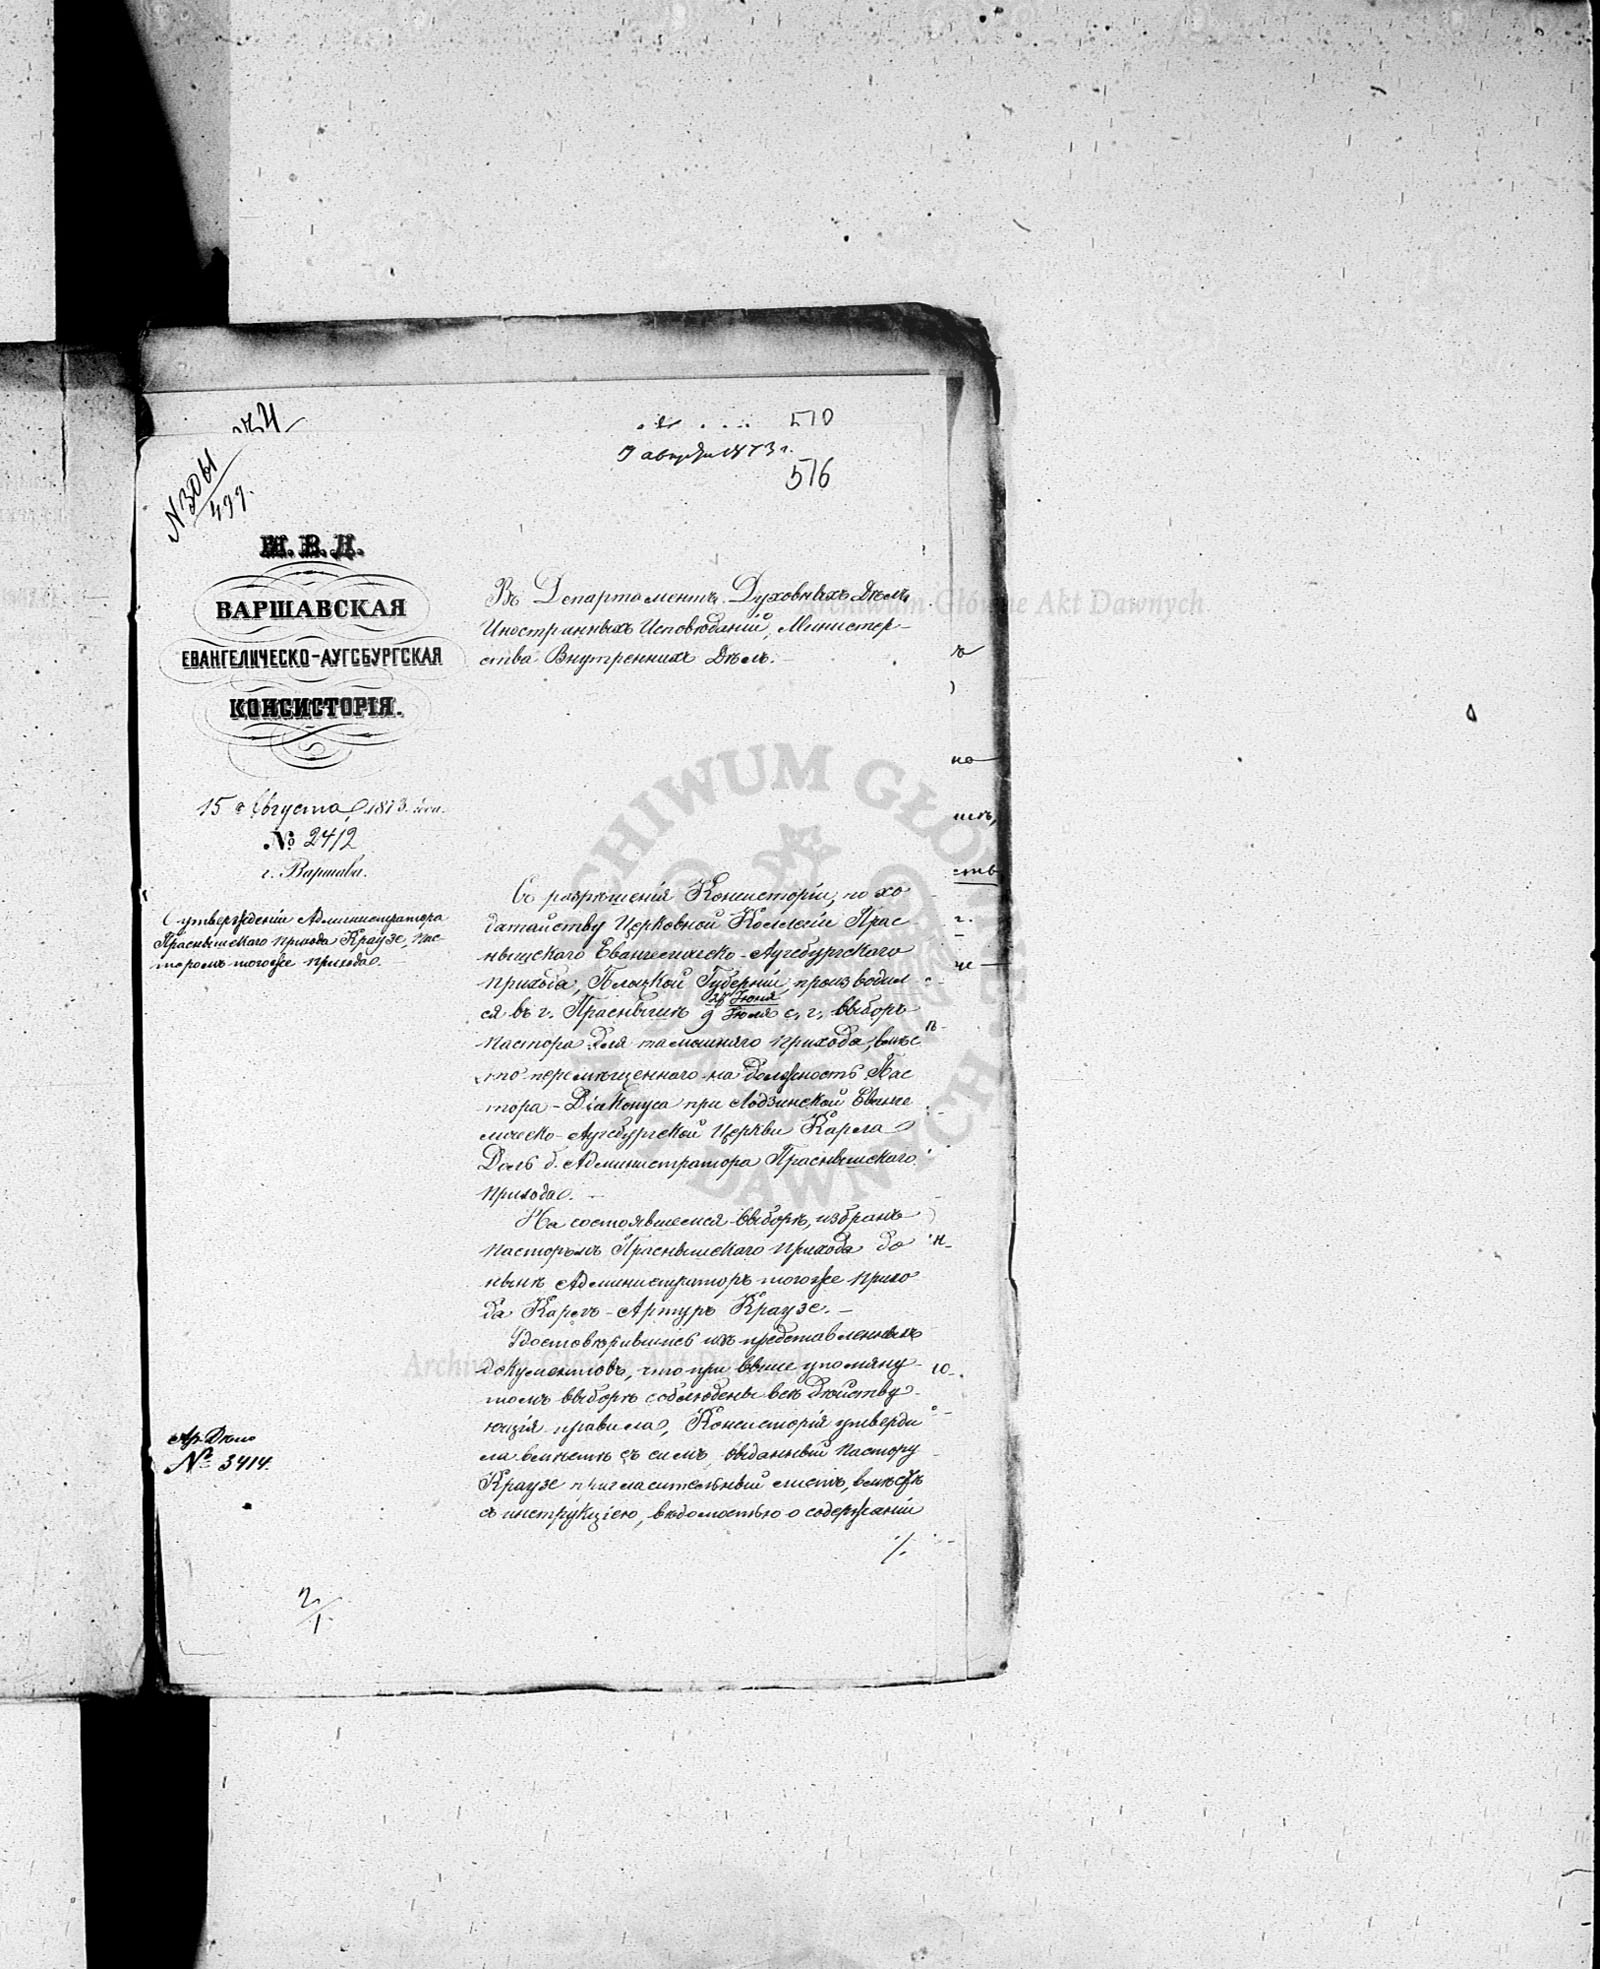 510
9 августа 1873 г.
516
№ 3061
499.
М. В. Д.
ВАРШАВСКАЯ
ЕВАНГЕЛИЧЕСКО-АУГСБУРГСКАЯ
КОНСИСТОРІЯ.
15 Августа 1873 года.
№ 2412
г. Варшава.
О утвержденіи Администратора
Праснышскаго прихода Краузе, Пас-
торомъ тогоже прихода.
Ар. Дѣло
№ 3414.
2/1.
Въ Департаментъ Духовныхъ Дѣлъ
Иностранныхъ Исповѣданій, Министер-
ства Внутреннихъ Дѣлъ.
Съ разрѣшенія Консисторіи, по хо
датайству Церковной Коллегіи Прас-
нышскаго Евангелическо-Аугсбургскаго
прихода, Плоцкой Губерніи, производил
ся въ г. Праснышѣ 27 Іюня / 9 Іюля с. г. выборъ
пастора для тамошняго прихода, вмѣс
то перемѣщеннаго на должность Пас
тора-Діаконуса при Лодзинской Еванге
лическо-Аугсбургской Церкви Карла
Доль б. Администратора Праснышскаго
прихода. —
На состоявшемся выборѣ, избранъ
пасторомъ Праснышскаго прихода до
нынѣ Администраторъ тогоже прихо
да Карлъ-Артуръ Краузе. —
Удостовѣрившись изъ представленныхъ
документовъ, что при выше упомяну-
томъ выборѣ соблюдены всѣ дѣйству-
ющія правила, Консисторія утверди
ла вмѣстѣ съ симъ, выданный Пастору
Краузе пригласительный листъ, вмѣстѣ
съ инструкціею, вѣдомостью о содержаніи
./.
ъ
)
но
ст
г.
че
н-
ю-
Archiwum Główne Akt Dawnych
ARCHIWUM GŁÓWNE AKT DAWNYCH
Archiwum Główne Akt Dawnych